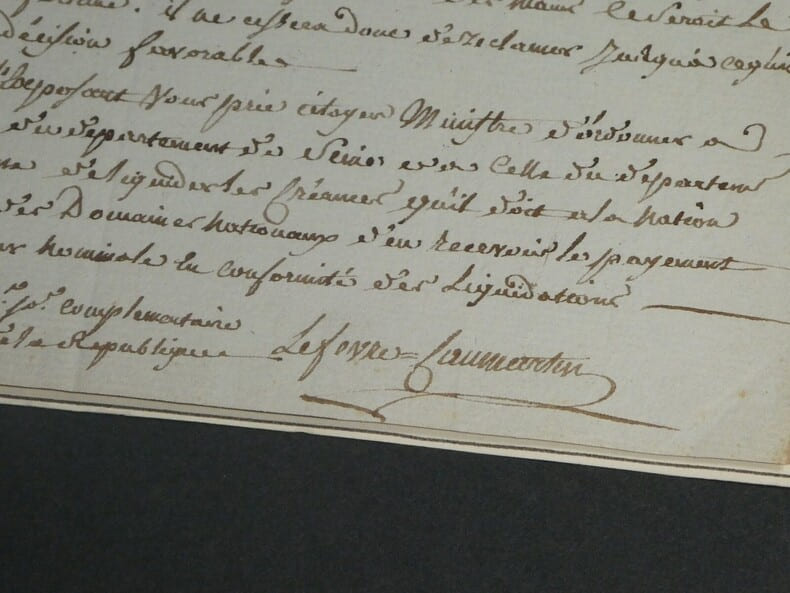 il ne cessera donc de reclamer jusqu'a ce qu'un
décision favorable
L'exposant Vous prie citoyen Ministre d'ordonner a
du département de Seine et a Celle du départem
de liquider les Créances qu'il doit a la Nation
des Domaines Nationaux d'en recevoir le payement
nominale en conformité des Liquidations
complementaire
de la Republique Lefevre=Caumartin